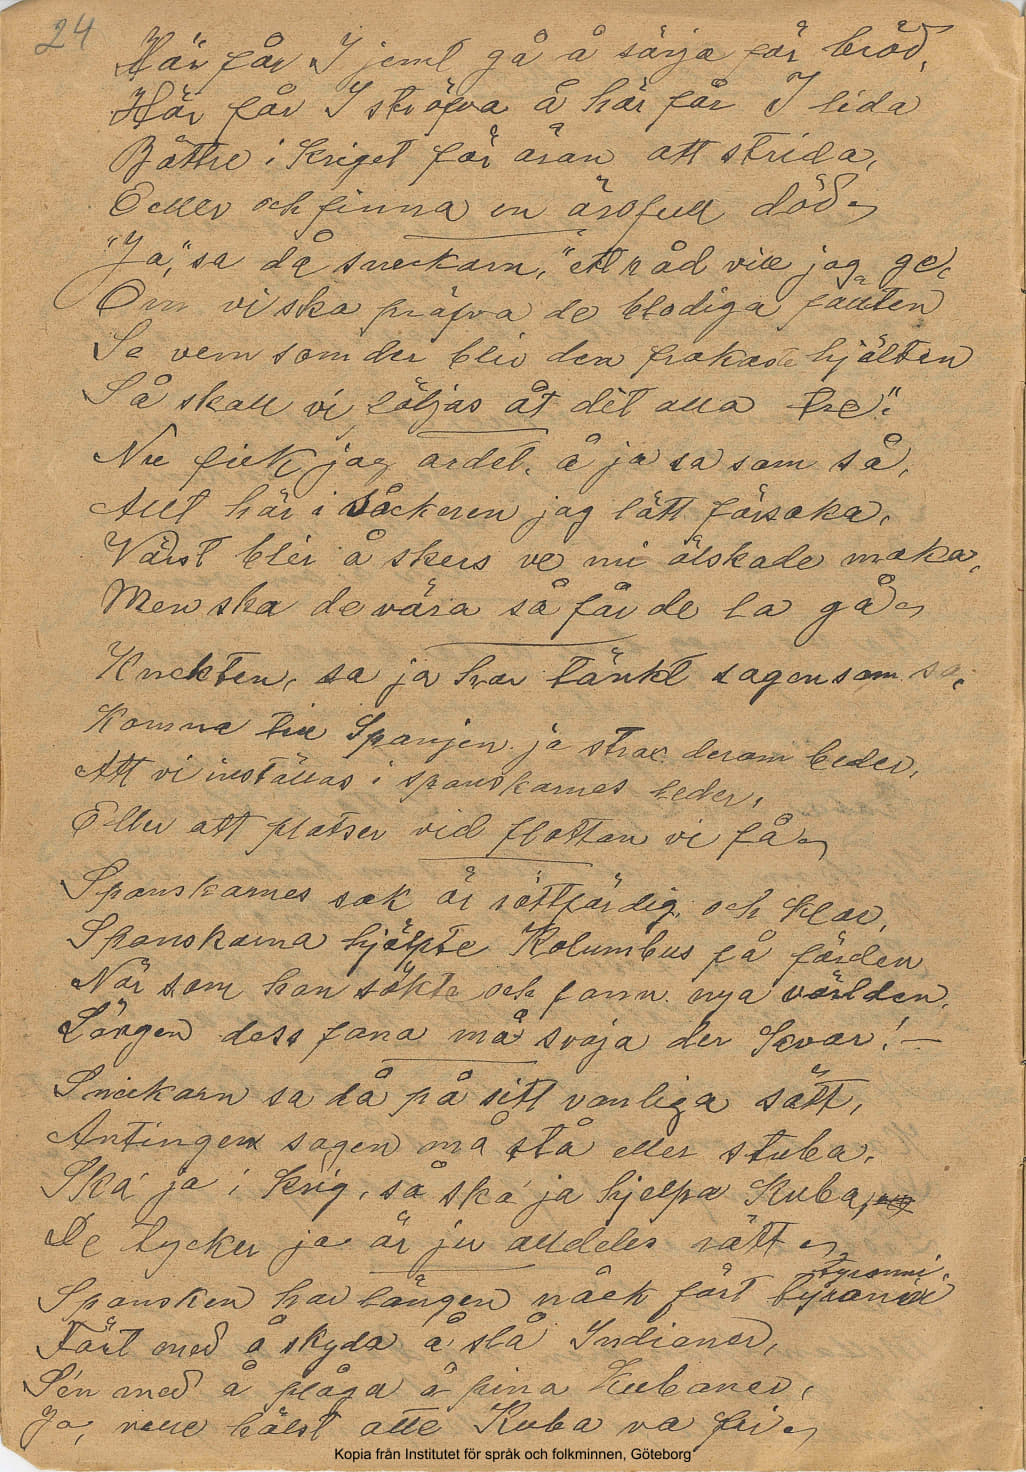 24
Här får I jemt gå å sörja för bröd,
Här får I sträfva å här får I lida
Bättre i kriget för äran att strida,
Eller och finna en ärofull död
"Ja," sa då snickarn, "ett råd vill jag ge,
Om vi ska pröfva de blodiga fälten
Se vem som der blir den frakaste hjälten
Så skall vi följas åt dit alla tre".
Nu fick jag ordet, å ja sa som så,
Allt här i Söckenen jag lätt försaka,
Värst blir å skers ve mi älskade maka,
Men ska de vära så får de la gå
Knekten, sa ja har tänkt sagen som så,
Komna till Spanjen ja strax derom beder,
Att vi inställas i spanskarnes leder,
Eller att platser vid flottan vi få
Spanskarnes sak är rättfärdig och klar,
Spanskarna hjälpte Kolumbus på färden
När som han sökte och fann nya världen.
Längen dess fana må svaja der kvar! –
Snickarn sa då på sitt vanliga sätt,
Antingen sagen må stå eller stuba,
Ska ja i krig, så ska ja hjelpa Kuba,
De tycker ja är ju alldeles rätt
Spansken har längen nåck fört tyranni
Först med å skyda å slå Indianer,
Sén med å plåga å pina Kubaner,
Ja, vålle hälst atte Kuba va fri
Kopia från Institutet för språk och folkminnen, Göteborg